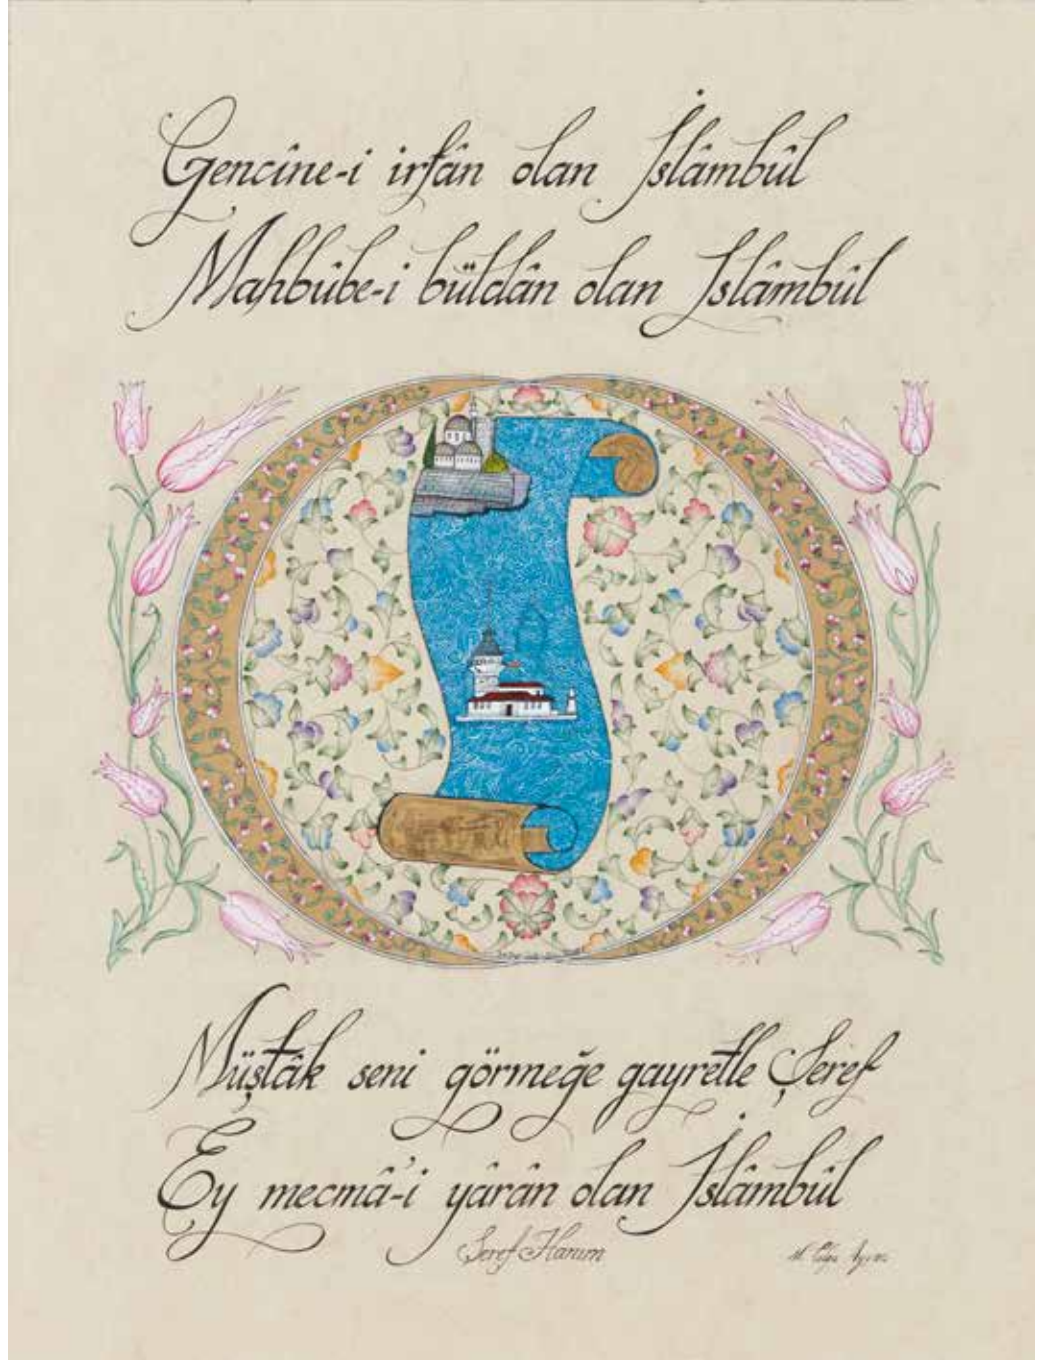 Gencîne-i irfân olan İslâmbûl
Mahbûbe-i büldân olan İslâmbûl
Müştâk seni görmeğe gayretle Şeref
Ey mecmâ'-i yârân olan İslâmbûl
Şeref Hanım